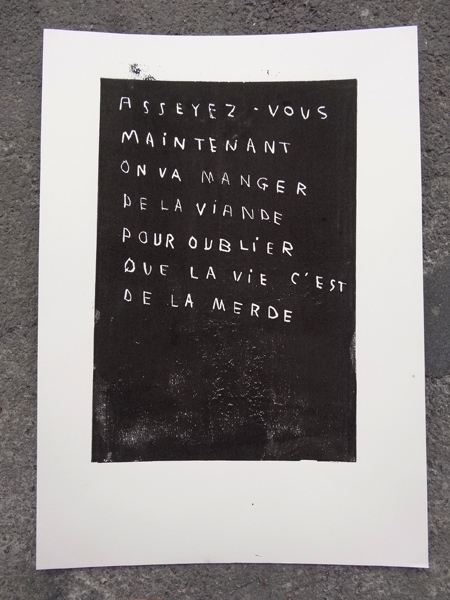 ASSEYEZ-VOUS
MAINTENANT
ON VA MANGER
DE LA ViANDE
POUR OUBLiER
QUE LA ViE C'EST
DE LA MERDE